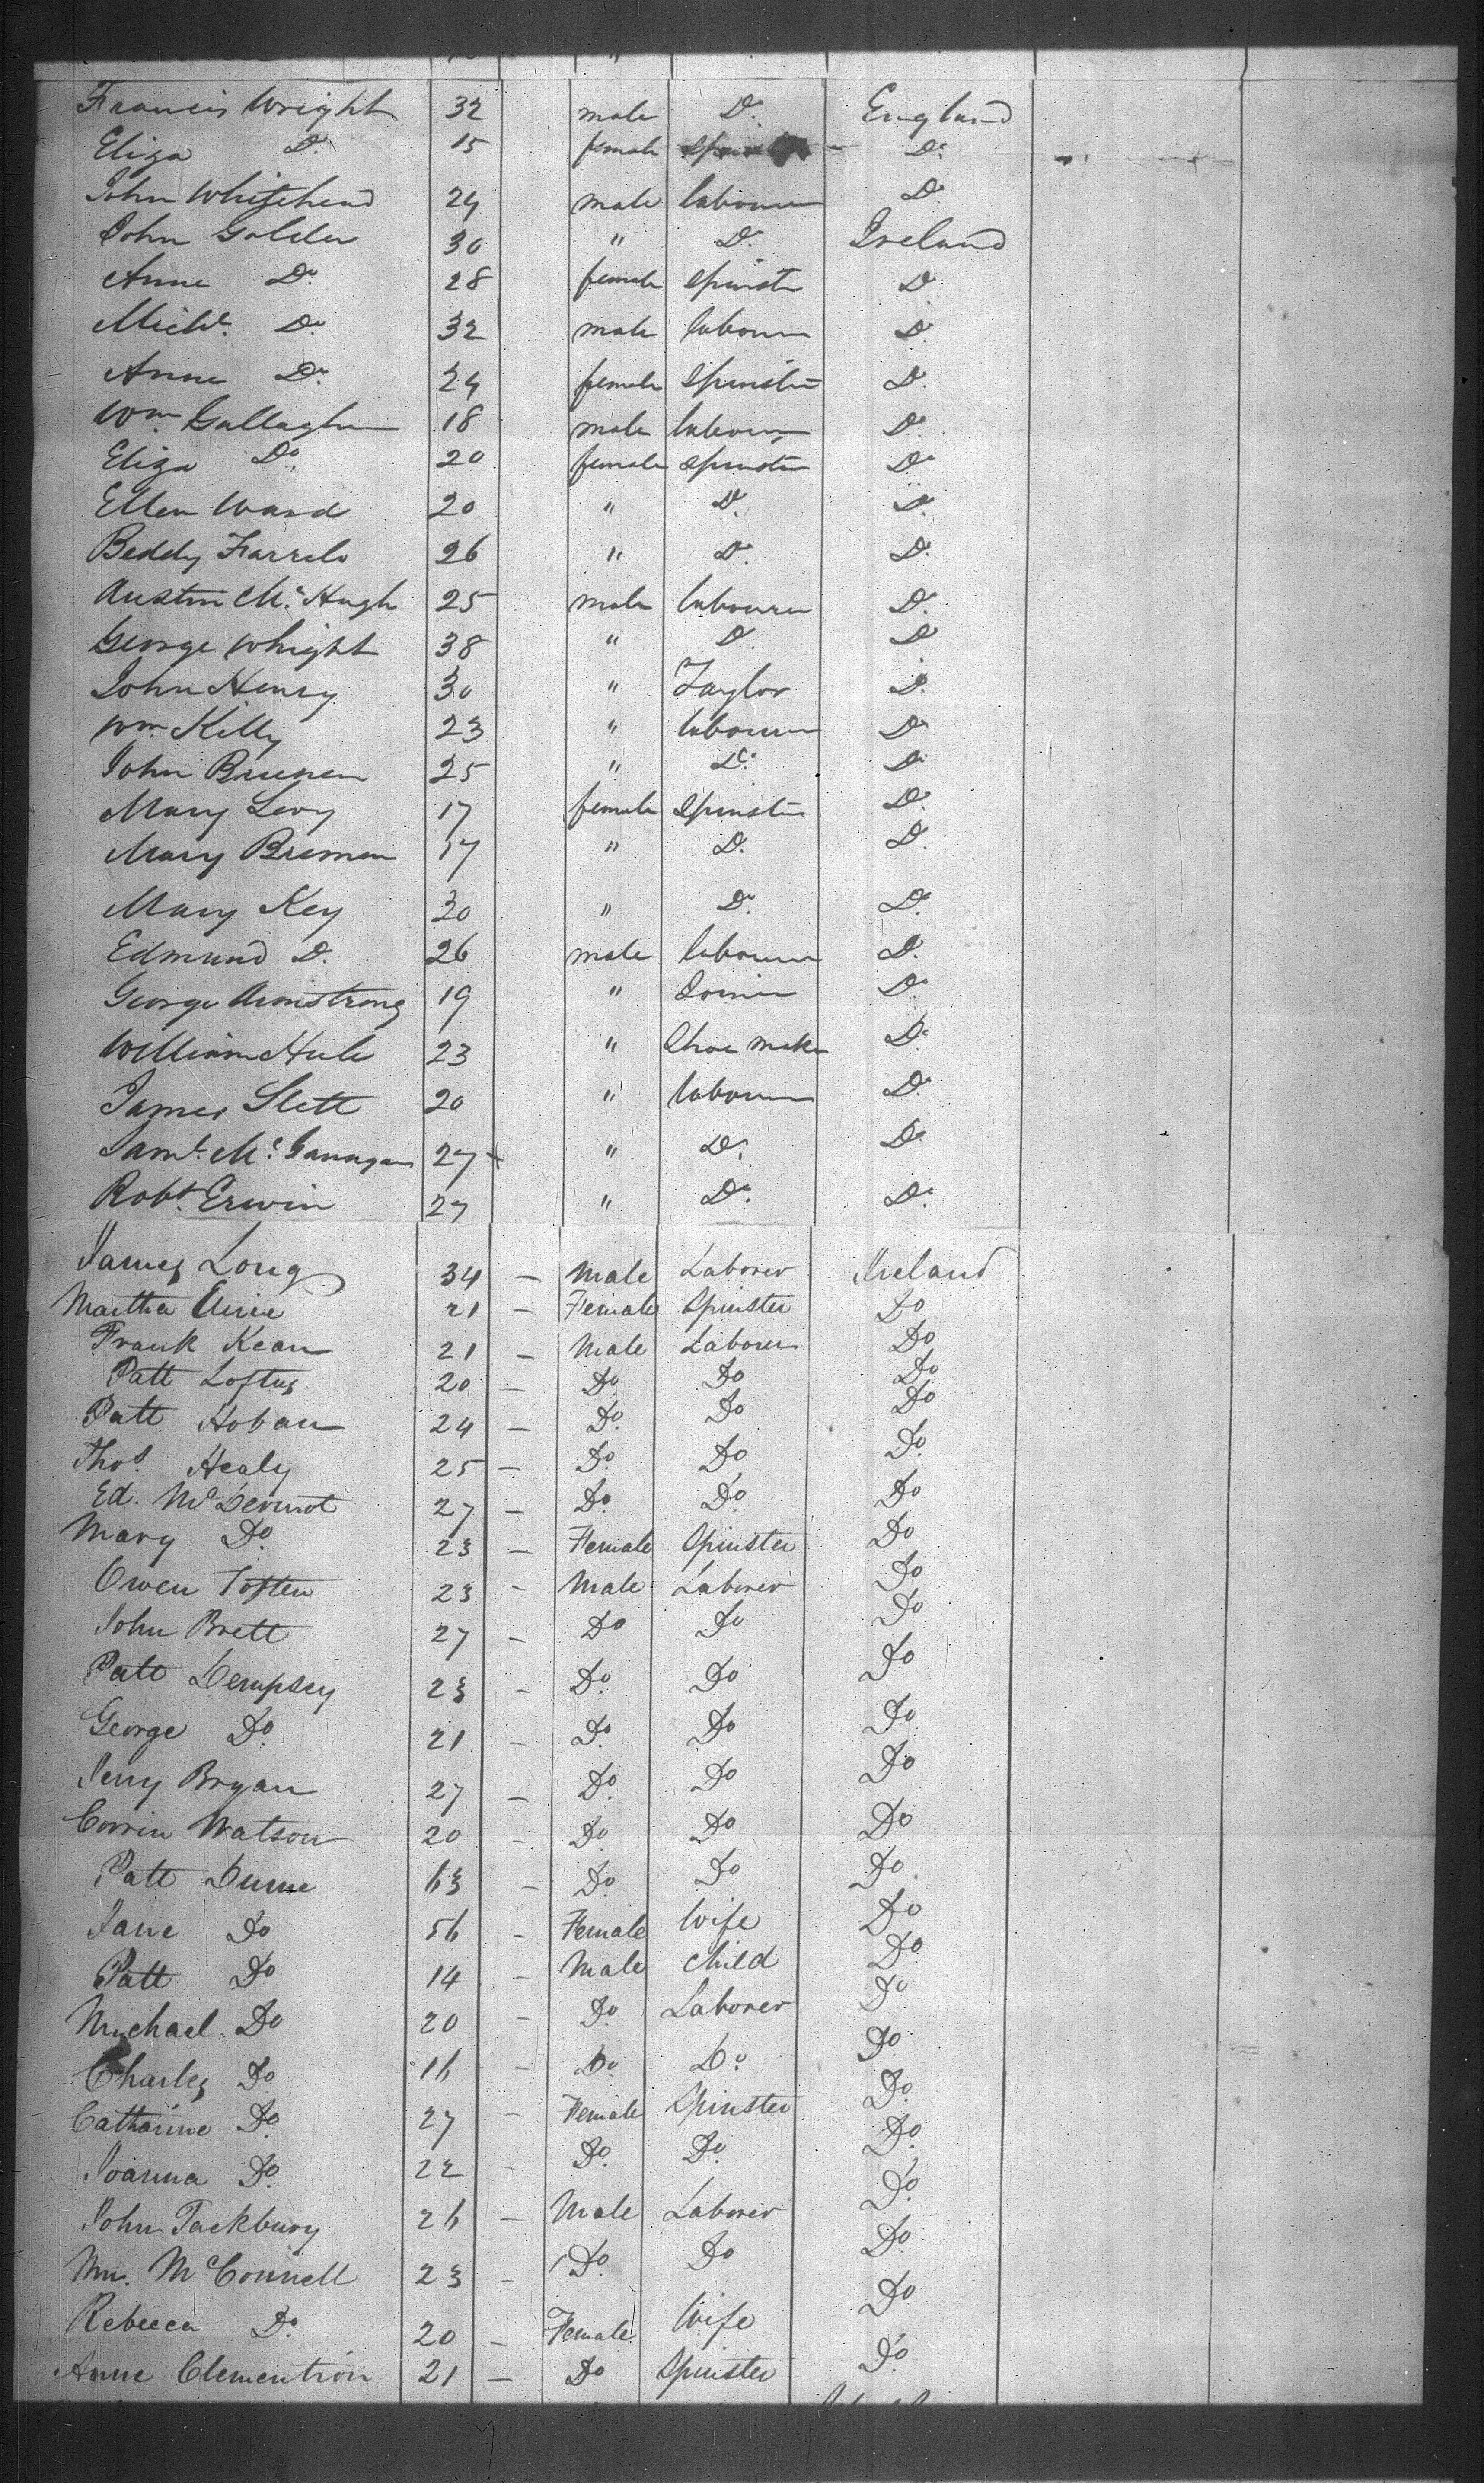 Francis Wright 32 male Do. England
Eliza Do. 15 female Do.
John Whitehead 24 male labourer Do.
John Golden 30 " Do. Ireland
Anne Do. 28 female Spinster Do.
Michl. Do. 32 male labourer Do.
Anne Do. 24 female Spinster Do.
Wm. Gallagher 18 male labourer Do.
Eliza Do. 20 female Spinster Do.
Ellen Ward 20 " Do. Do.
Beddy 26 " Do. Do.
Austin Mc.Hugh 25 male labourer Do.
George Whright 38 " Do. Do.
John Henry 30 " Taylor Do.
Wm. Killy 23 " labourer Do.
John 25 " Do. Do.
Mary Levy 17 female Spinster Do.
Mary 17 " Do. Do.
Mary Key 20 " Do. Do.
Edmund Do. 26 male labourer Do.
George Armstrong 19 " Joiner Do.
William 23 " Shoe maker Do.
James 20 " labourer Do.
Saml. Mc. 27 " Do. Do.
Robt. Erwin 27 " Do. Do.
James Long 34 – Male Laborer Ireland
Martha 21 – Female Spinster Do
Frank Kean 21 – Male Laborer Do
Patt Loftus 20 – Do. Do Do
Patt Hoban 24 – Do. Do Do
Thos. Healy 25 – Do. Do Do.
Ed. McDermot 27 – Do. Do. Do
Mary Do. 23 – Female Spinster Do
Owen 23 - Male Laborer Do
John Brett 27 – Do Do Do
Patt Dempsey 23 – Do. Do Do
George Do. 21 – Do. Do Do
Jerry Bryan 27 – Do. Do Do
Watson 20 – Do. Do Do
Patt Dunne 63 – Do. Do Do.
Jane Do 56 – Female Wife Do
Patt Do 14 – Male Child Do
Michael Do 20 – Do. Laborer Do
Charles Do 16 – Do. Do. Do
Catharine Do. 27 – Female Spinster Do.
Joanna Do. 22 – Do. Do. Do.
John Tackbury 26 – Male Laborer Do.
Wm. McConnell 23 – Do. Do Do.
Rebecca Do. 20 – Female Wife Do
Anne Clemention 21 – Do Spinster Do.